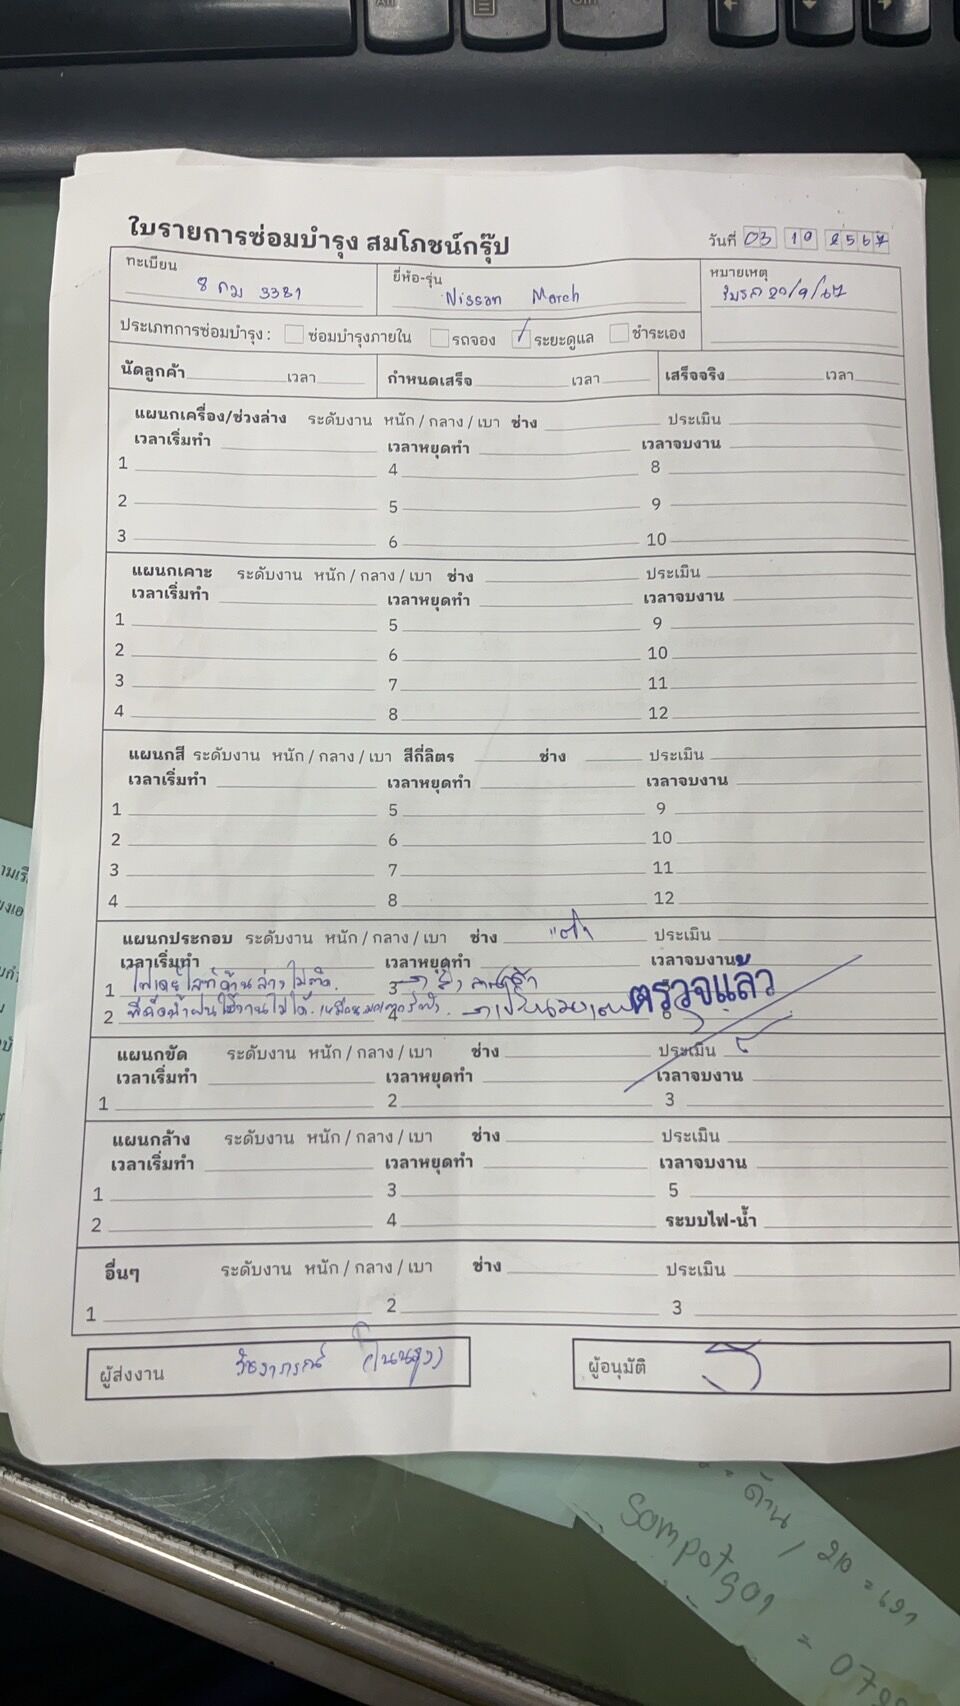 ใบรายการซ่อมบำรุง สมโภชน์กรุ๊ป
วันที่ 03 10 2567
ทะเบียน 8 กม 3381
ยี่ห้อ-รุ่น Nissan March
หมายเหตุ รับรถ 20/9/67
ประเภทการซ่อมบำรุง : ซ่อมบำรุงภายใน รถจอง ระยะดูแล ชำระเอง
นัดลูกค้า เวลา กำหนดเสร็จ เวลา เสร็จจริง เวลา
แผนกเครื่อง/ช่วงล่าง ระดับงาน หนัก / กลาง / เบา ช่าง ประเมิน
เวลาเริ่มทำ เวลาหยุดทำ เวลาจบงาน
1 4 8
2 5 9
3 6 10
แผนกเคาะ ระดับงาน หนัก / กลาง / เบา ช่าง ประเมิน
เวลาเริ่มทำ เวลาหยุดทำ เวลาจบงาน
1 5 9
2 6 10
3 7 11
4 8 12
แผนกสี ระดับงาน หนัก / กลาง / เบา สีกี่ลิตร ช่าง ประเมิน
เวลาเริ่มทำ เวลาหยุดทำ เวลาจบงาน
1 5 9
2 6 10
3 7 11
4 8 12
แผนกประกอบ ระดับงาน หนัก / กลาง / เบา ช่าง ประเมิน
เวลาเริ่มทำ เวลาหยุดทำ เวลาจบงาน
1 ไฟเดย์ไลท์ด้านล่างไม่ติด. 3
ตรวจแล้ว
2 ที่ฉีดน้ำฝนใช้งานไม่ได้. เหมือนมอเตอร์ 4
แผนกขัด ระดับงาน หนัก / กลาง / เบา ช่าง ประเมิน
เวลาเริ่มทำ เวลาหยุดทำ เวลาจบงาน
1 2 3
แผนกล้าง ระดับงาน หนัก / กลาง / เบา ช่าง ประเมิน
เวลาเริ่มทำ เวลาหยุดทำ เวลาจบงาน
1 3 5
2 4 ระบบไฟ-น้ำ
อื่นๆ ระดับงาน หนัก / กลาง / เบา ช่าง ประเมิน
1 2 3
ผู้ส่งงาน
ผู้อนุมัติ
ด้าน,
Sompotgor
= 070